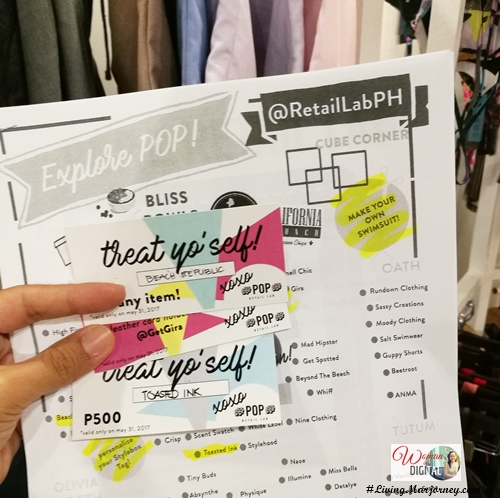 @RetailLabPH
Explore POP!
CUBE CORNER
BLISS
MAKE YOUR
OWN
SWIMSUIT!
treat yo'self!
BEACH REPUBLIC
any item!
xoxo
POP
RETAIL LAB
leather card
@GetGira
xoxo
POP
RETAIL LAB
*valid only on may 31, 2017
treat yo'self!
TOASTED INK
xoxo
POP
RETAIL LAB
P500
*valid only on may 31, 2017
nell Chic
Gira
Mad Hipster
Get Spotted
Beyond The Beach
Whiff
OATH
Rundown Clothing
Sassy Creations
Moody Clothing
Salt Swimwear
Guppy Shorts
Beetroot
ANMA
TUTUM
personalise
your Stylebox
Tag!
Crisp
Scent Swatch
White Label
Nine Clothing
Toasted Ink
Stylehood
Tiny Buds
Neoe
Miss Bella
Absynthe
Physique
Illumine
Detalye
OLIVIA
Woman
DIGITAL
#LivingMarjorney.com